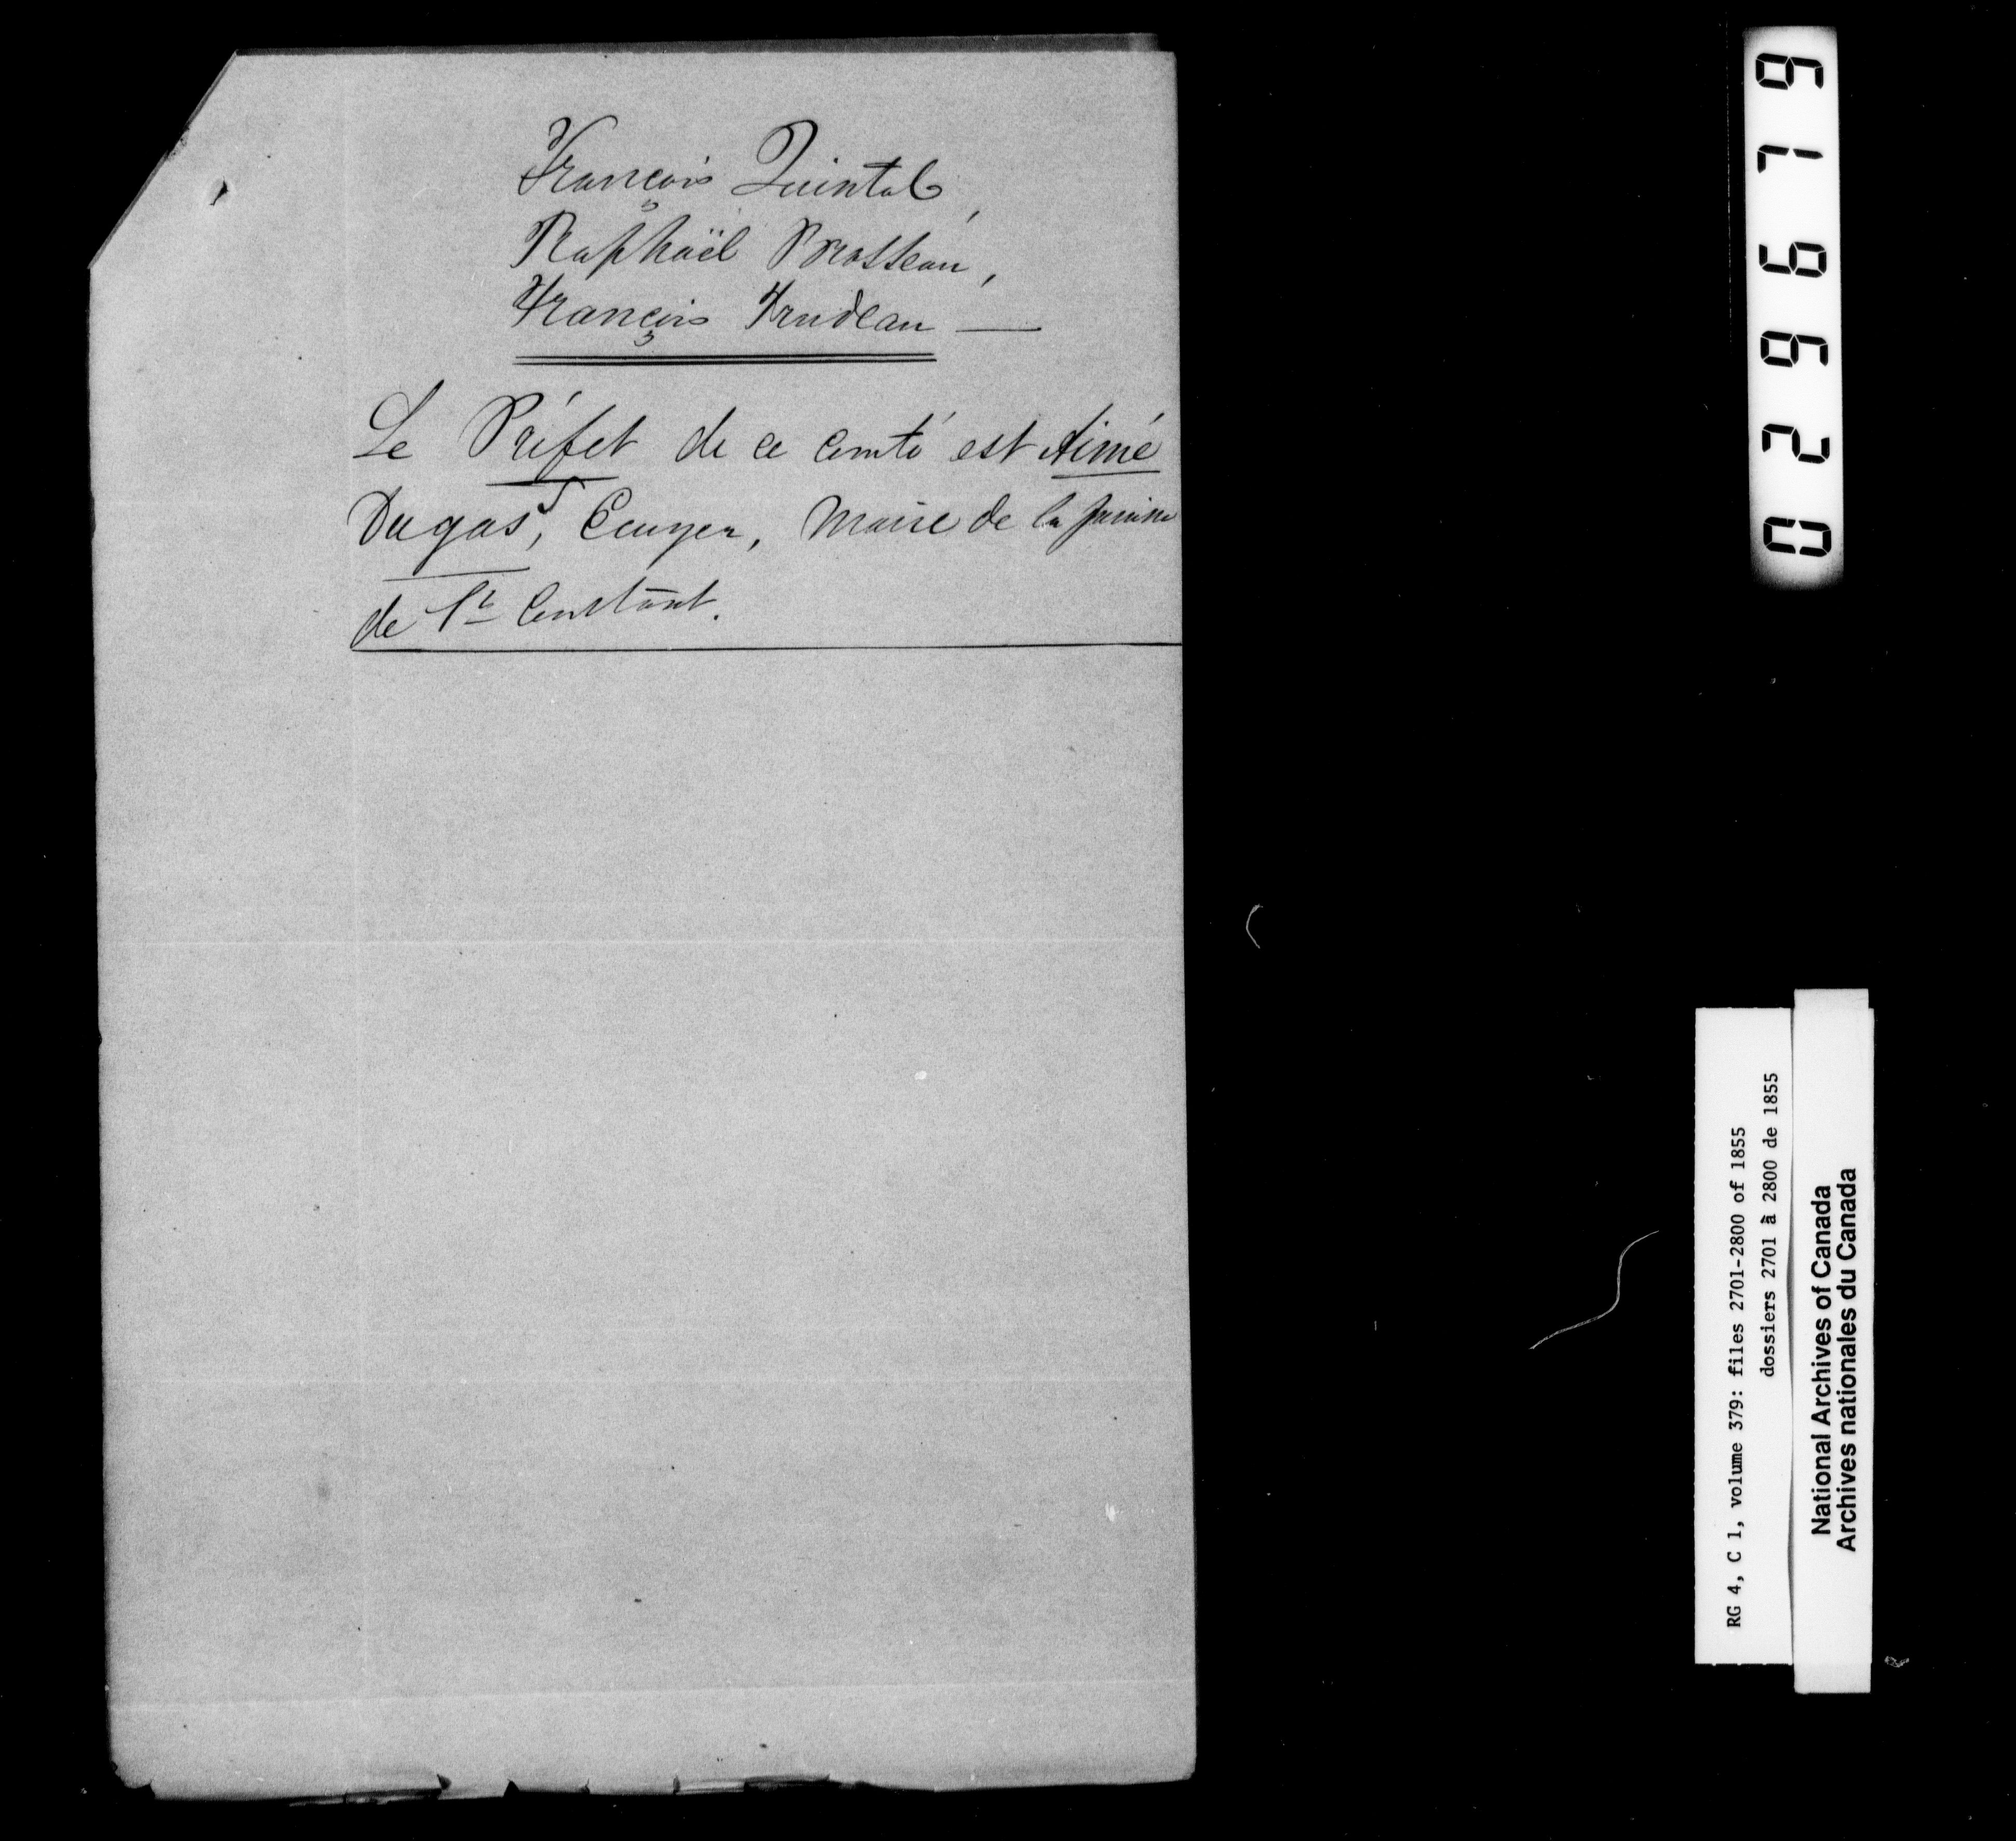 François Quintal,
Raphaël Brosseau,
François Trudeau —
Le Préfet de ce comté est Aimé
Dugas, Ecuyer, Maire de la paroisse
de St Constant.
029679
RG 4, C 1, volume 379: files 2701-2800 of 1855
dossiers 2701 à 2800 de 1855
National Archives of Canada
Archives nationales du Canada